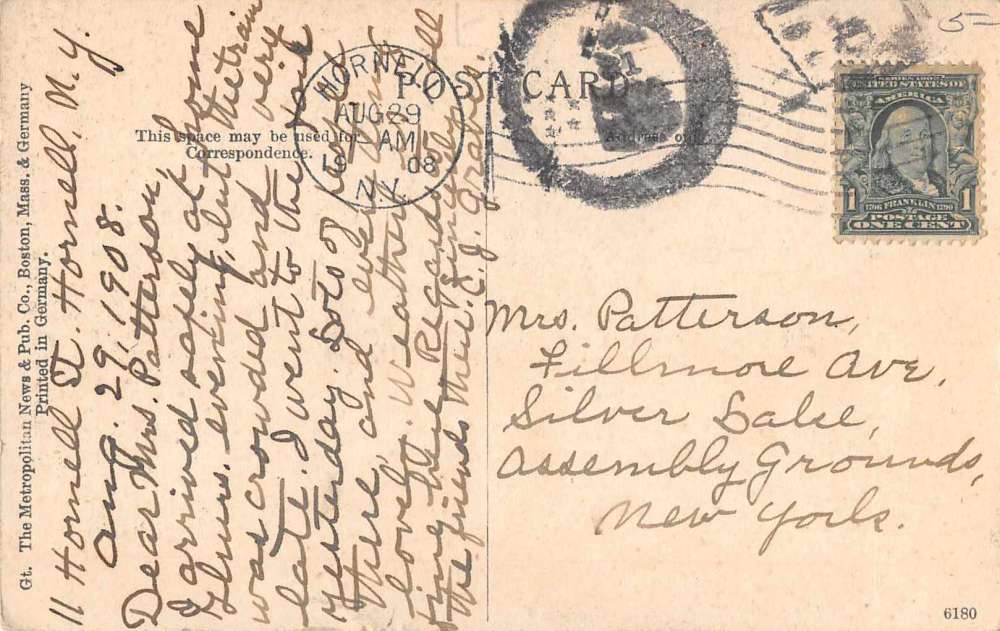 POST CARD
This space may be used for
Correspondence.
Address only
HORNELL
AUG 29
AM
1908
N.Y.
SERIES 1902
UNITED STATES OF
AMERICA
1706 FRANKLIN 1790
POSTAGE
1 ONE CENT 1
5-
11 Hornell St. Hornell. N.Y.
Aug. 29. 1908.
Dear Mrs. Patterson,
I arrived safely at home
Thurs. evening, but the train
was crowded and very
late. I went to the
yesterday. Lots of
there, and
lovely weather.
the friends there. E. J. Graves.
Mrs. Patterson,
Fillmore Ave,
Silver Lake,
Assembly Grounds,
New York.
Gt. The Metropolitan News & Pub. Co., Boston, Mass. & Germany
Printed in Germany.
6180